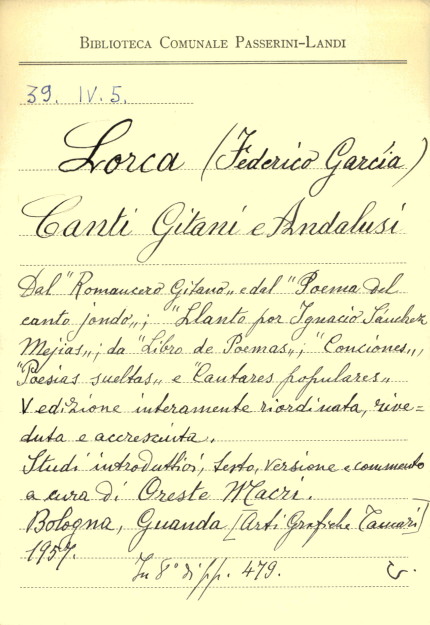 Biblioteca Comunale Passerini-Landi
39. IV. 5.
Lorca (Federico García)
Canti Gitani e Andalusi
Dal "Romancero Gitano„ e dal "Poema del
canto jondo„; "Llanto por Ignacio Sánchez
Mejías„; da "Libro de Poemas„; "Conciones„,
"Poesias sueltas„ e "Cantares populares„
V edizione interamente riordinata, rive=
duta e accresciuta.
Studi introduttivi, testo, versione e commento
a cura di Oreste Macrí.
Bologna, Guanda [Arti Grafiche Tamari]
1957.
In 8° di pp. 479.